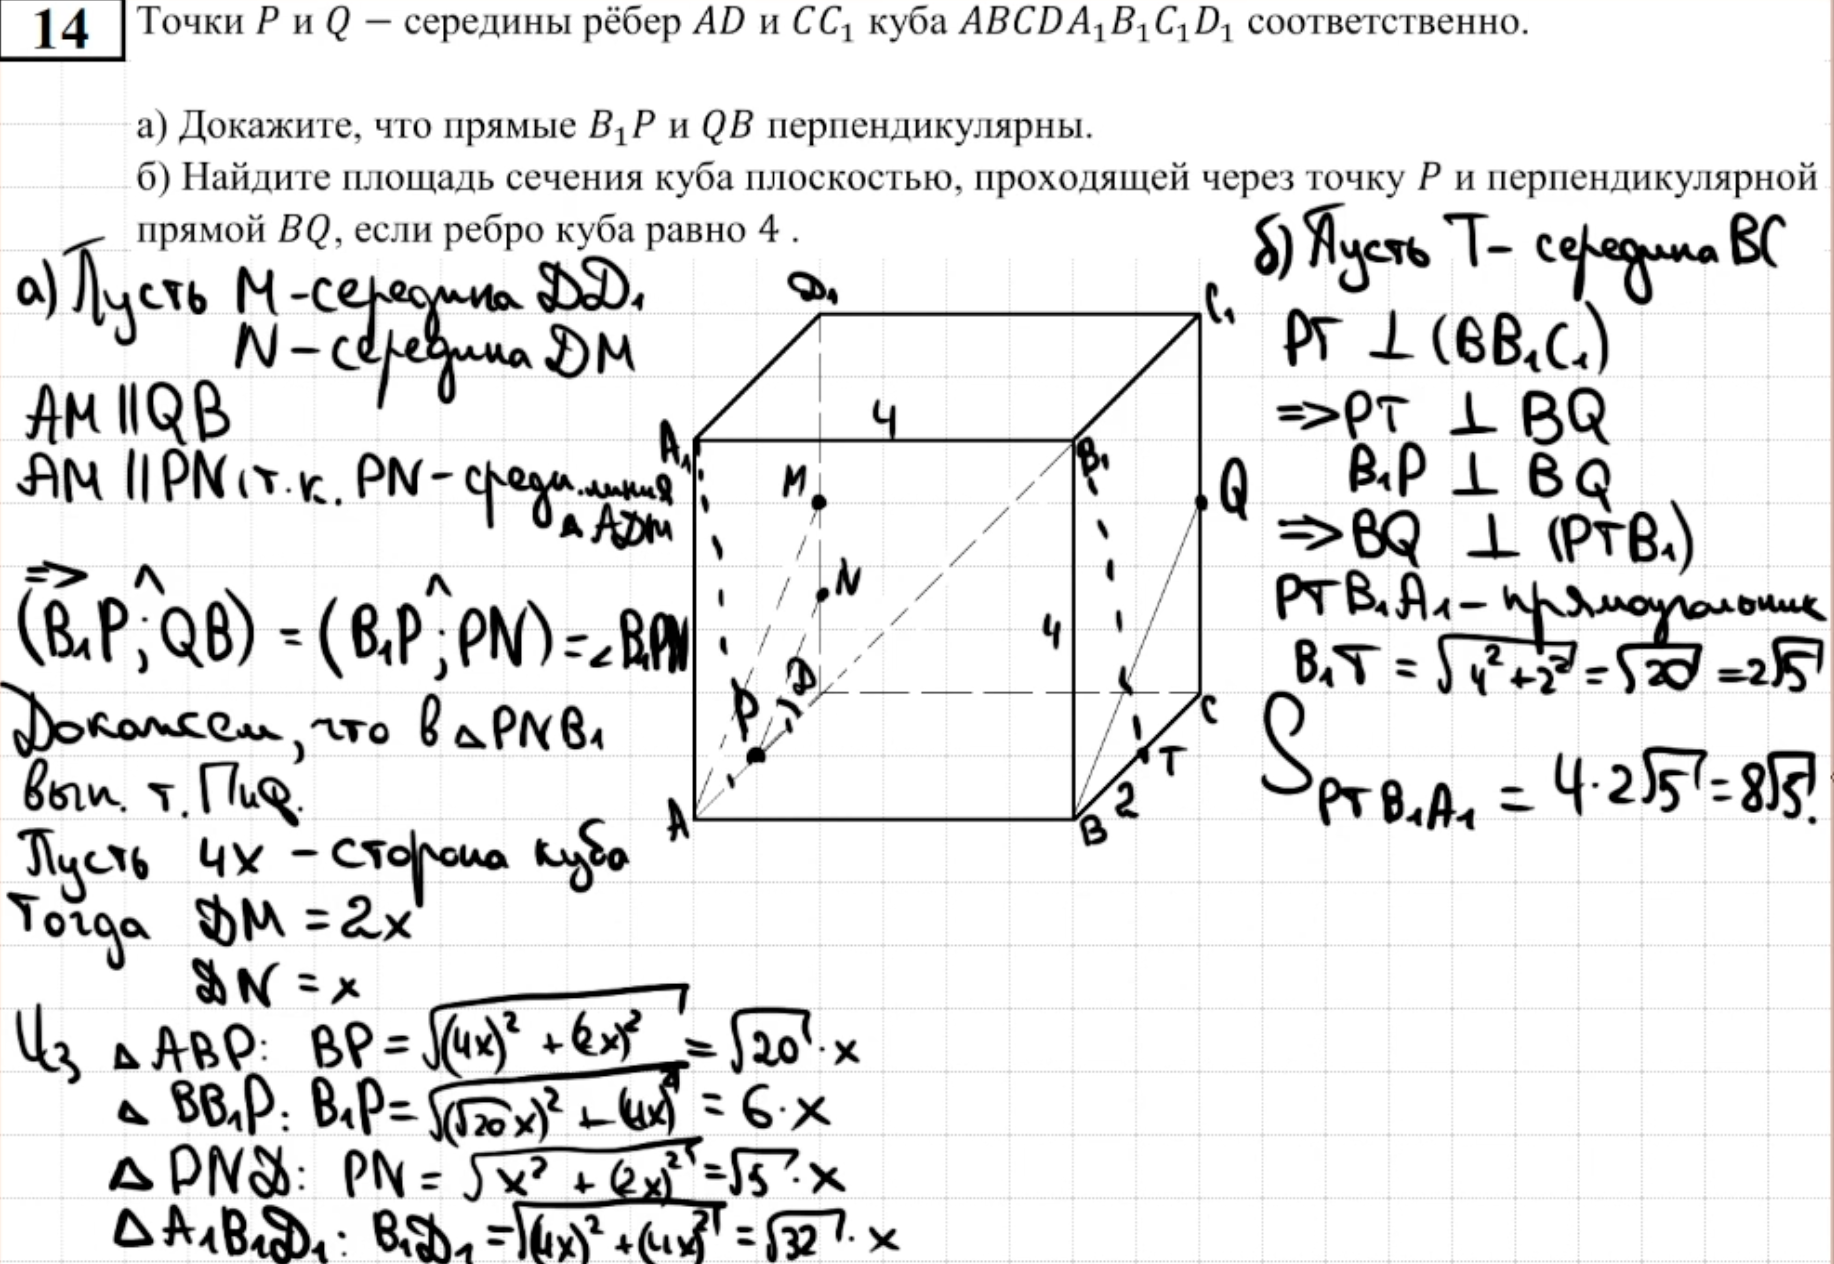 14
Точки P и Q − середины рёбер AD и CC₁ куба ABCDA₁B₁C₁D₁ соответственно.
а) Докажите, что прямые B₁P и QB перпендикулярны.
б) Найдите площадь сечения куба плоскостью, проходящей через точку P и перпендикулярной
прямой BQ, если ребро куба равно 4 .
а) Пусть M - середина DD₁
N - середина DM
AM || QB
AM || PN, т.к. PN - средн. линия
△ ADM
=> (B₁P; QB) = (B₁P; PN) = ∠B₁PN
Докажем, что в △PNB₁
вып. т. Пиф.
Пусть 4x - сторона куба
Тогда DM = 2x
DN = x
Из △ABP: BP = √((4x)² + (2x)²) = √20 · x
△ BB₁P: B₁P = √((√20x)² + (4x)²) = 6 · x
△ PND: PN = √(x² + (2x)²) = √5 · x
△ A₁B₁D₁: B₁D₁ = √((4x)² + (4x)²) = √32 · x
D₁
C₁
4
A₁
B₁
M
Q
N
4
P
D
C
T
2
A
B
б) Пусть T - середина BC
PT ⊥ (BB₁C₁)
=> PT ⊥ BQ
B₁P ⊥ BQ
=> BQ ⊥ (PTB₁)
PTB₁A₁ - прямоугольник
B₁T = √(4² + 2²) = √20 = 2√5
S PTB₁A₁ = 4 · 2√5 = 8√5.